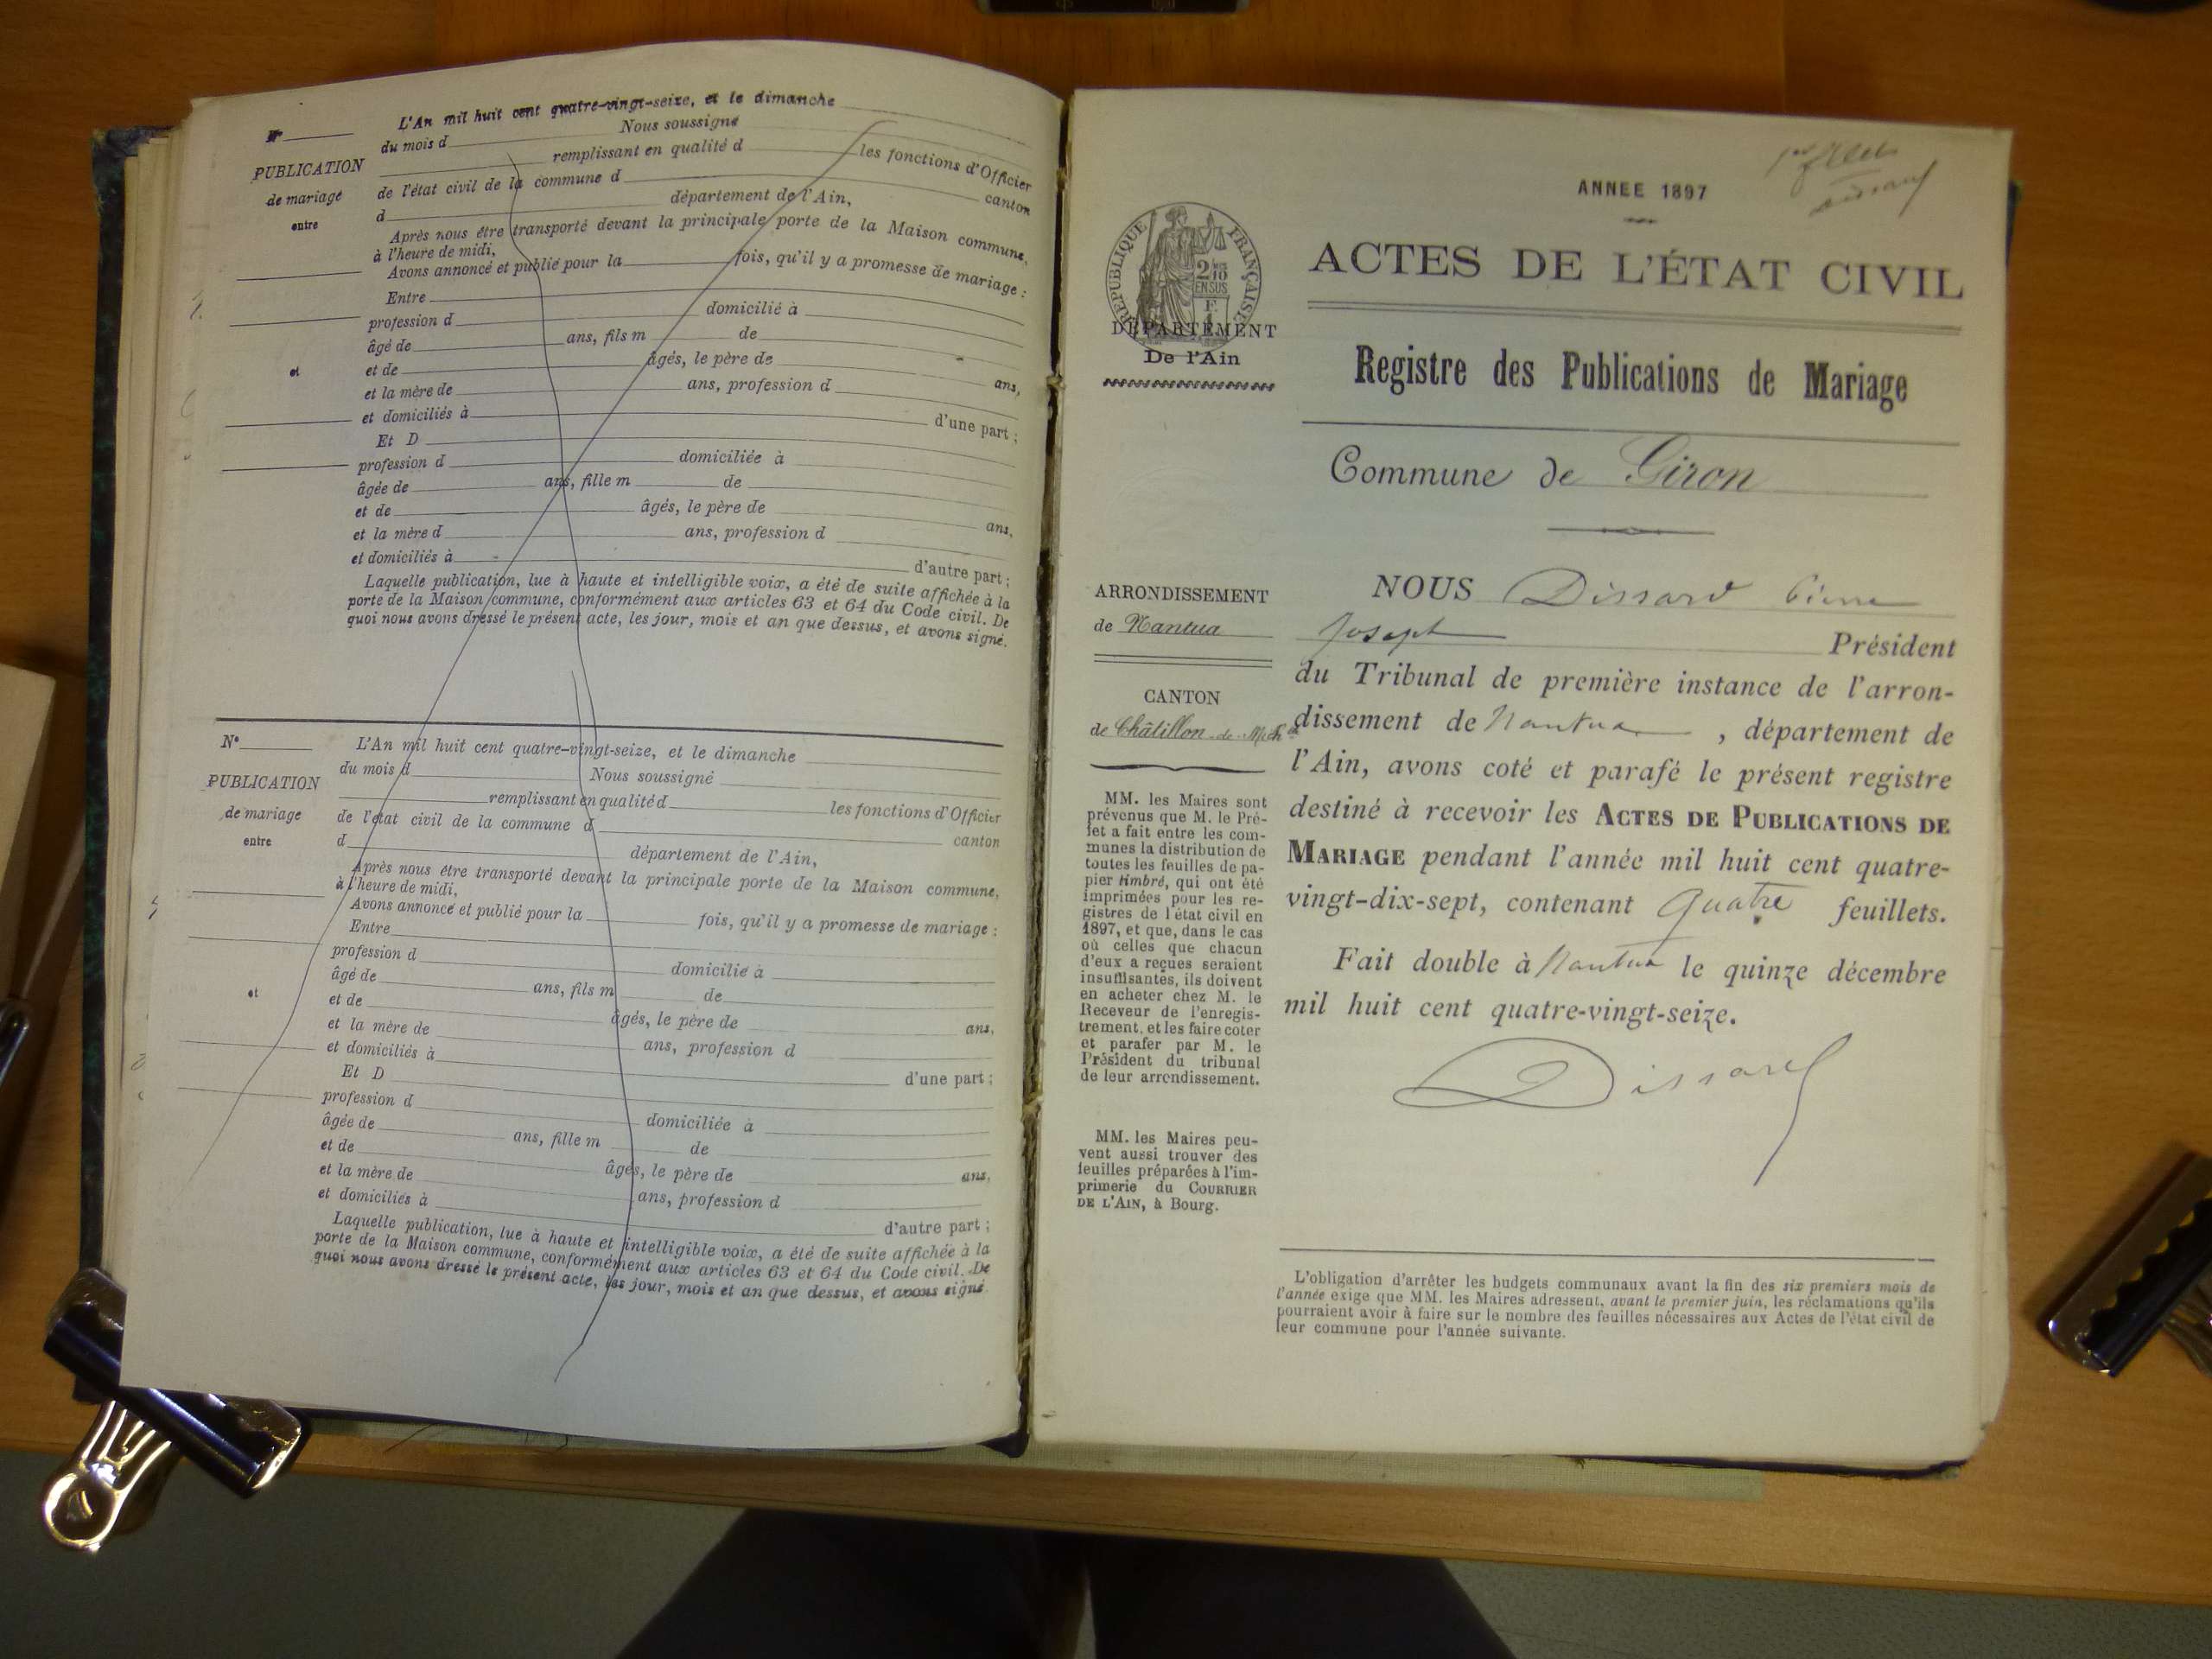 N° L'An mil huit cent quatre-vingt-seize, et le dimanche
du mois d Nous soussigné
PUBLICATION remplissant en qualité d les fonctions d'Officier
de mariage de l'état civil de la commune d canton
entre d département de l'Ain,
Après nous être transporté devant la principale porte de la Maison commune,
à l'heure de midi,
Avons annoncé et publié pour la fois, qu'il y a promesse de mariage :
Entre
profession d domicilié à
âgé de ans, fils m de
et et de âgés, le père de ans,
et la mère de ans, profession d
et domiciliés à d'une part ;
Et D
profession d domiciliée à
âgée de ans, fille m de
et de âgés, le père de ans,
et la mère d ans, profession d
et domiciliés à d'autre part ;
Laquelle publication, lue à haute et intelligible voix, a été de suite affichée à la
porte de la Maison commune, conformément aux articles 63 et 64 du Code civil. De
quoi nous avons dressé le présent acte, les jour, mois et an que dessus, et avons signé.
N° L'An mil huit cent quatre-vingt-seize, et le dimanche
du mois d Nous soussigné
PUBLICATION remplissant en qualité d les fonctions d'Officier
de mariage de l'état civil de la commune d canton
entre d département de l'Ain,
Après nous être transporté devant la principale porte de la Maison commune,
à l'heure de midi,
Avons annoncé et publié pour la fois, qu'il y a promesse de mariage :
Entre
profession d domicilié à
âgé de ans, fils m de
et et de âgés, le père de ans,
et la mère de ans, profession d
et domiciliés à d'une part ;
Et D
profession d domiciliée à
âgée de ans, fille m de
et de âgés, le père de ans,
et la mère de ans, profession d
et domiciliés à d'autre part ;
Laquelle publication, lue à haute et intelligible voix, a été de suite affichée à la
porte de la Maison commune, conformément aux articles 63 et 64 du Code civil. De
quoi nous avons dressé le présent acte, les jour, mois et an que dessus, et avons signé.
ANNÉE 1897
RÉPUBLIQUE FRANÇAISE
2/10 EN SUS
DÉPARTEMENT
De l'Ain
ACTES DE L'ÉTAT CIVIL
Registre des Publications de Mariage
Commune de Giron
ARRONDISSEMENT
de Nantua
CANTON
de Châtillon-de-Mich
MM. les Maires sont
prévenus que M. le Pré-
fet a fait entre les com-
munes la distribution de
toutes les feuilles de pa-
pier timbré, qui ont été
imprimées pour les re-
gistres de l'état civil en
1897, et que, dans le cas
où celles que chacun
d'eux a reçues seraient
insuffisantes, ils doivent
en acheter chez M. le
Receveur de l'enregis-
trement, et les faire coter
et parafer par M. le
Président du tribunal
de leur arrondissement.
MM. les Maires peu-
vent aussi trouver des
feuilles préparées à l'im-
primerie du COURRIER
DE L'AIN, à Bourg.
NOUS Dissard Pierre
Joseph Président
du Tribunal de première instance de l'arron-
dissement de Nantua, département de
l'Ain, avons coté et parafé le présent registre
destiné à recevoir les ACTES DE PUBLICATIONS DE
MARIAGE pendant l'année mil huit cent quatre-
vingt-dix-sept, contenant quatre feuillets.
Fait double à Nantua le quinze décembre
mil huit cent quatre-vingt-seize.
Dissard
L'obligation d'arrêter les budgets communaux avant la fin des six premiers mois de
l'année exige que MM. les Maires adressent, avant le premier juin, les réclamations qu'ils
pourraient avoir à faire sur le nombre des feuilles nécessaires aux Actes de l'état civil de
leur commune pour l'année suivante.